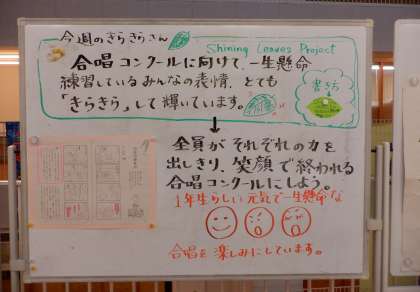 今週のきらきらさん
Shining Leaves Project
合唱コンクールに向けて、一生懸命
練習しているみんなの表情、とても
「きらきら」して輝いています。
↓
全員がそれぞれの力を
出しきり、笑顔で終われる
合唱コンクールにしよう。
1年生らしい元気で一生懸命な
合唱を楽しみにしています。